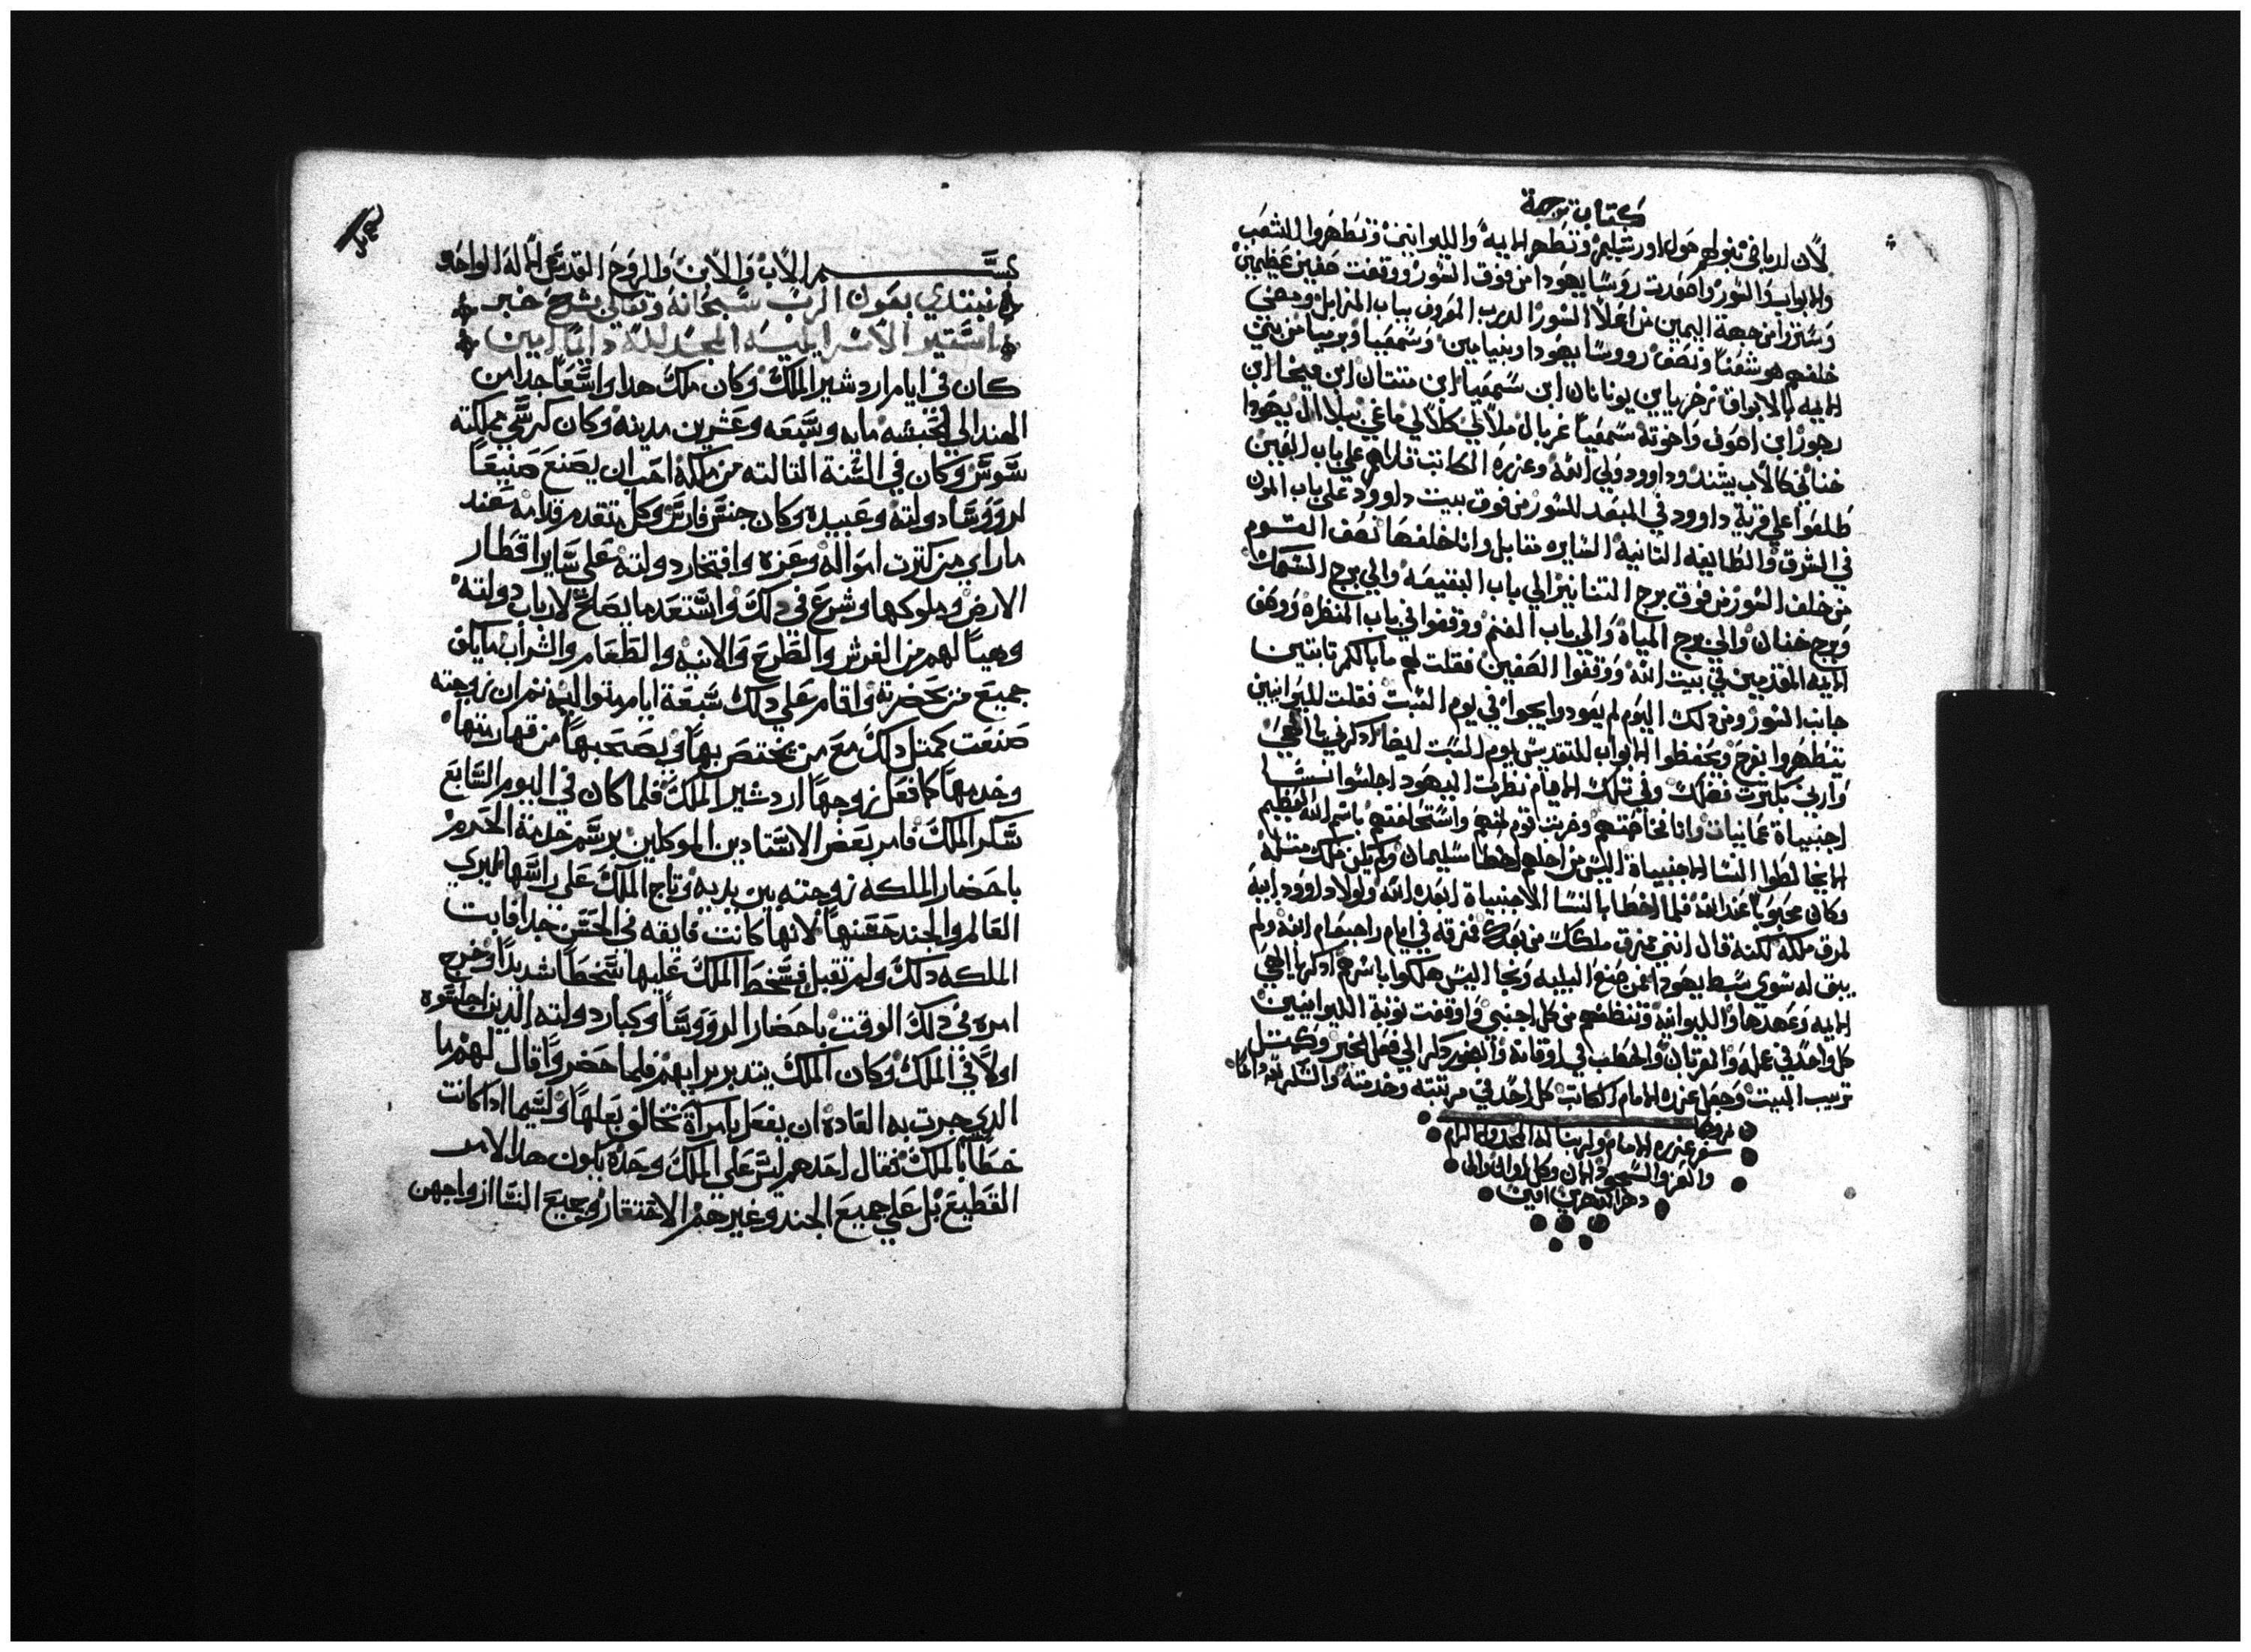 كتاب ترجمة
لأن لدياني نبولهم حول اورشليم وتطهر الايمه والليوانيين وتطهروا الشعب
والابواب والسور واصعدت روسا يهودا من فوق السور ووقفت صفين عظيمين
وسترزا من جهة اليمين من اعلا السور الدرب المعروف بباب المزابل ومضي
خلفهم هوشعنا ونصف رووسا يهودا وبنيامين وسمعيا ويرميا من بني
الايمه بالابواق زخريا بن يوناتان ابن سمعيا ابن متنتان ابن ميخا ابن
زجور ابن اصوف واخوته سمعيا عزريال ملالي كلالي ماغي نتلاال يهودا
خناني كالاب يشند وداوود ولي الله وعزره الكاتب قدامهم علي باب العين
طلعوا علي قرية داوود في المبعد للسور من فوق بيت داوود علي باب المون
في الشرق والطايفه التانيه السايره مقابل وانا خلفها نصف القوم
من خلف السور من فوق برج التنانير الي باب البقيعه والي برج السمك
وبرج خنان والي برج المياة والي باب الغنم ووقفوا في باب المنظره ووقف
الايمه المقدمين في بيت الله ووقفوا الصفين فقلت لهم ما بالكم تابتين
جانب السور ومن دلك اليوم لم يعودوا يجوا في يوم السبت فقلت لليوانيين
يتطهروا بفرح ويحفظوا الابواب للتقديس يوم السبت ليضا ادكرني يا الهي
واربي بكترت فضلك وفي تلك الايام نظرت اليهود اجلسوا نسا
اجنبياة عمانيات وانا فخاصمتهم وضربت قوم منهم واستحلفتهم باسم الله العظيم
لا يخالطوا النسا الاجنبياة اليس من اجلهم اخطا سليمان ولم يكن ملك متله
وكان محبوبا عند الله فلما اخطا بالنسا الاجنبياة اجده الله ولولا داوود ابيه
لمزق ملكه لكنه قال انني ممزق ملكك من بعدك فمزقه في ايام راحبعام ابنه ولم
يبق له سوي سبط يهودا فمن صنع البليه ونجا اليس هلكوا باسرهم ادكرها الهي
الايمه وعهدها والليوانيه وتنظفهم من كل اجنبي واوقفت نوبة الليوانيين
كل واحد في عمله والقربان والحطب في اوقاته وابكور دكر الي فعل الخير وكمتل
ترتيب البيت وجعل عزره الامام الكاتب كل احد في مرتبته وخدمته والشكر لله دايما
سفر عزره الامام ولربنا له المجد والاكرام
والعز والسجود الان وكل اوان والي
دهر الداهرين امين
بسم الاب والابن والروح القدس الاله الواحد
نبتدي بعون الرب سبحانه وتعالي بشرح خبر
استير الاسرايليه المجد لله دايما امين
كان في ايام اردشير الملك وكان ملك هدا واسعا جدا من
الهند الي الحبشه مايه وسبعه وعشرين مدينه وكان كرسي مملكته
سوس وكان في السنة التالته من ملكه احب ان يصنع صنيعا
لرووسا دولته وعبيده وكان جنس فارس وكل متقدم قدامه عند
ما راي من كترت امواله وعزه وافتخار دولته علي ساير اقطار
الارض وملوكها وشرع في دلك واستعد ما يصلح لارباب دولته
وهيا لهم من الفرش والطرح والانيه والطعام والشراب ما يكفي
جميع من بحضرته واقام علي دلك سبعة ايام متواليه تم ان زوجته
صنعت كمتل دلك مع من يختص بها ويصحبها من قهارنتها
وخدمها كما فعل زوجها اردشير الملك فلما كان في اليوم السابع
سكر الملك فامر بعض الاستادين الموكلين برسم خدمة الحرم
باحضار الملكه زوجته بين يديه وتاج الملك علي راسها ليري
العالم والجند حسنها لانها كانت فايقه في الحسن جدا فابت
الملكه دلك ولم تقبل فسخط الملك عليها سخطا شديدا وخرج
امره في دلك الوقت باحضار الرووسا وكبار دولته الذين اجلسوه
اولا في الملك وكان الملك يتدبر برايهم فلما حضروا قال لهم ما
الدي جرت به العاده ان يفعل بامراة تخالف بعلها ولسيما اداكانت
خطا بالملك فقال احدهم ليس علي الملك وحده يكون هدا الامر
القطيع بل علي جميع الجند وغيرهم الاقتقار وجميع النسا ازواجهن